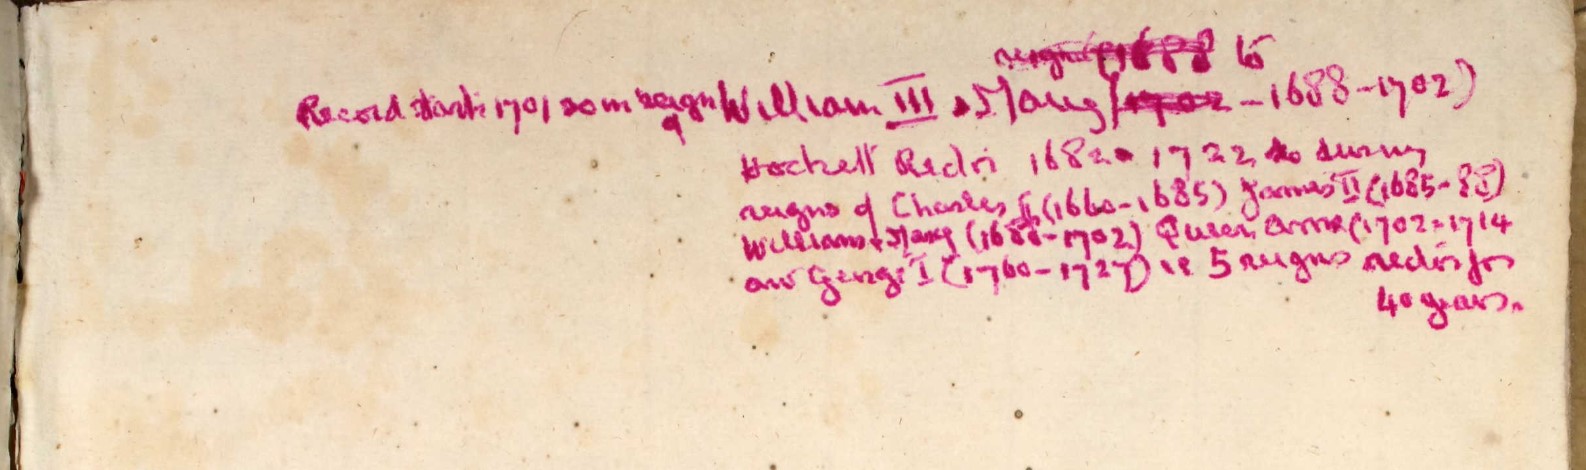 reigned (1688 to
Record starts 1701 so in reign of William III & Mary (1702 - 1688-1702)
Hockett Rector 1682 - 1722 so during
reigns of Charles II (1660-1685) James II (1685-88)
William & Mary (1688-1702) Queen Anne (1702-1714
and George I (1760-1727) ie 5 reigns rector for
40 years.